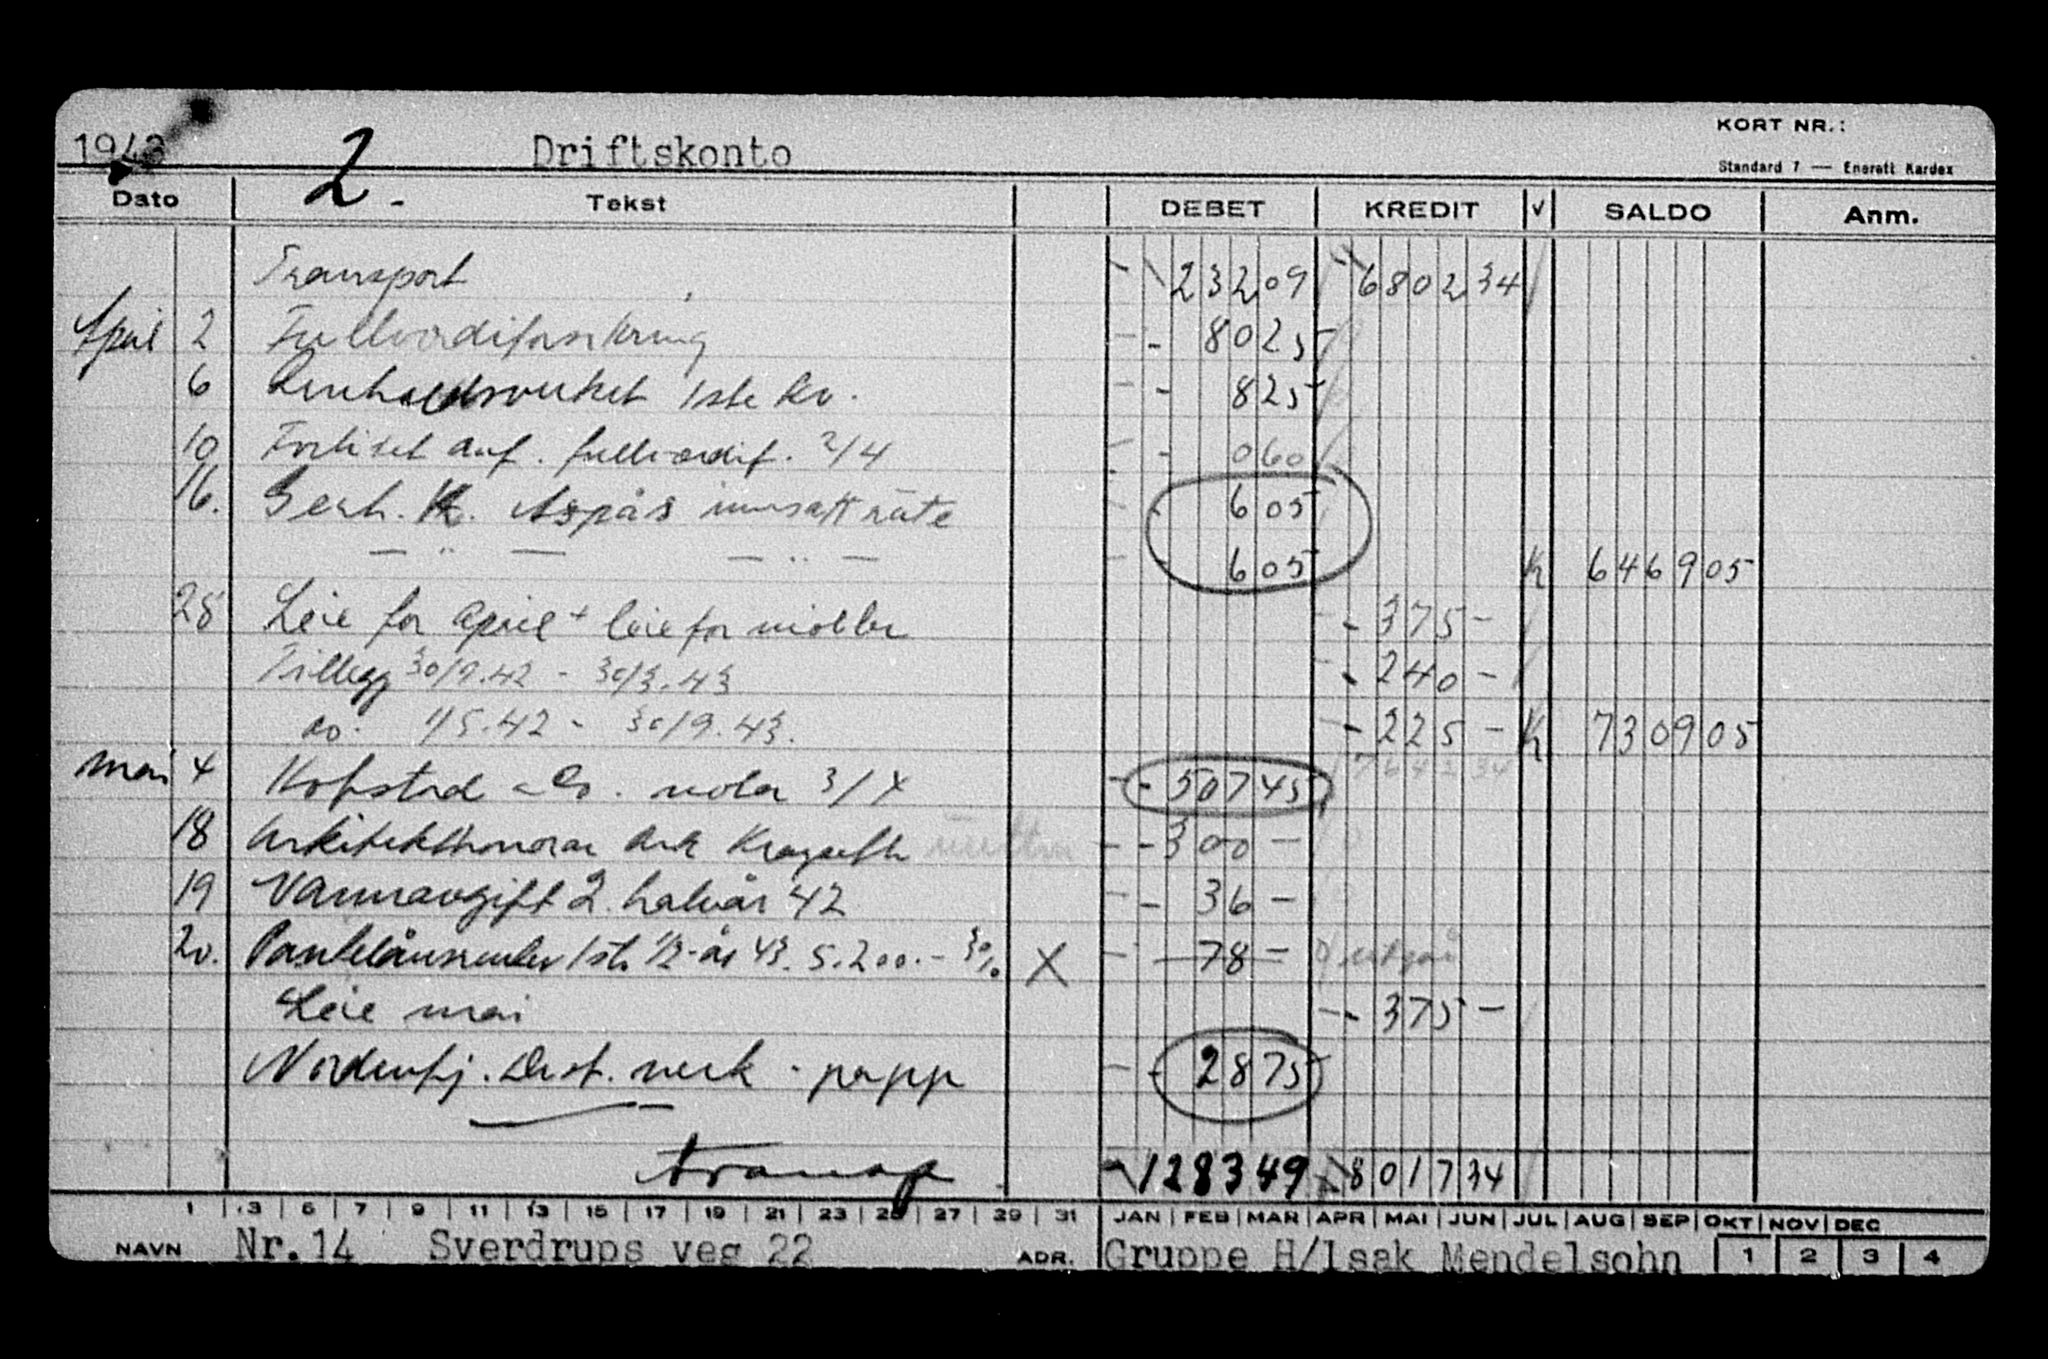 KORT NR.:
1943 2. Driftskonto
Standard 7 — Enerett Kardex
Dato Tekst DEBET KREDIT V SALDO Anm.
Transport 232 09 6802 34
April 2 Fullverdiforsikring 80 25
6 Renholdsverket 1ste kv. 8 25
10 Forhiset auf. fullverdif. 2/4 0 60
16. Gerh. K. Aspås innsatt rute 6 05
— " — — " — 6 05 K 6469 05
28 Leie for april + leie for møbler 375 -
Tillegg 30/9.42 - 30/3.43 240 -
do. 1/5.42 - 30/9.43. 225 - K 7309 05
7642 34
Mai 4 Kofstad & Co. nota 3/4 507 45
18 Arkitekthonorar Ark Kragseth 300 -
19 Vannavgift 2. halvår 42 36 -
20. Pantelånsrenter 1ste 1/2-år 43. 5.200.- 3% X 78 - utgår
Leie mai 375 -
Nordenfj. Dest. verk - papp 28 75
Transp 1283 49 8017 34
1 3 5 7 9 11 13 15 17 19 21 23 25 27 29 31 JAN FEB MAR APR MAI JUN JUL AUG SEP OKT NOV DEC
NAVN Nr.14 Sverdrups veg 22 ADR. Gruppe H/Isak Mendelsohn 1 2 3 4